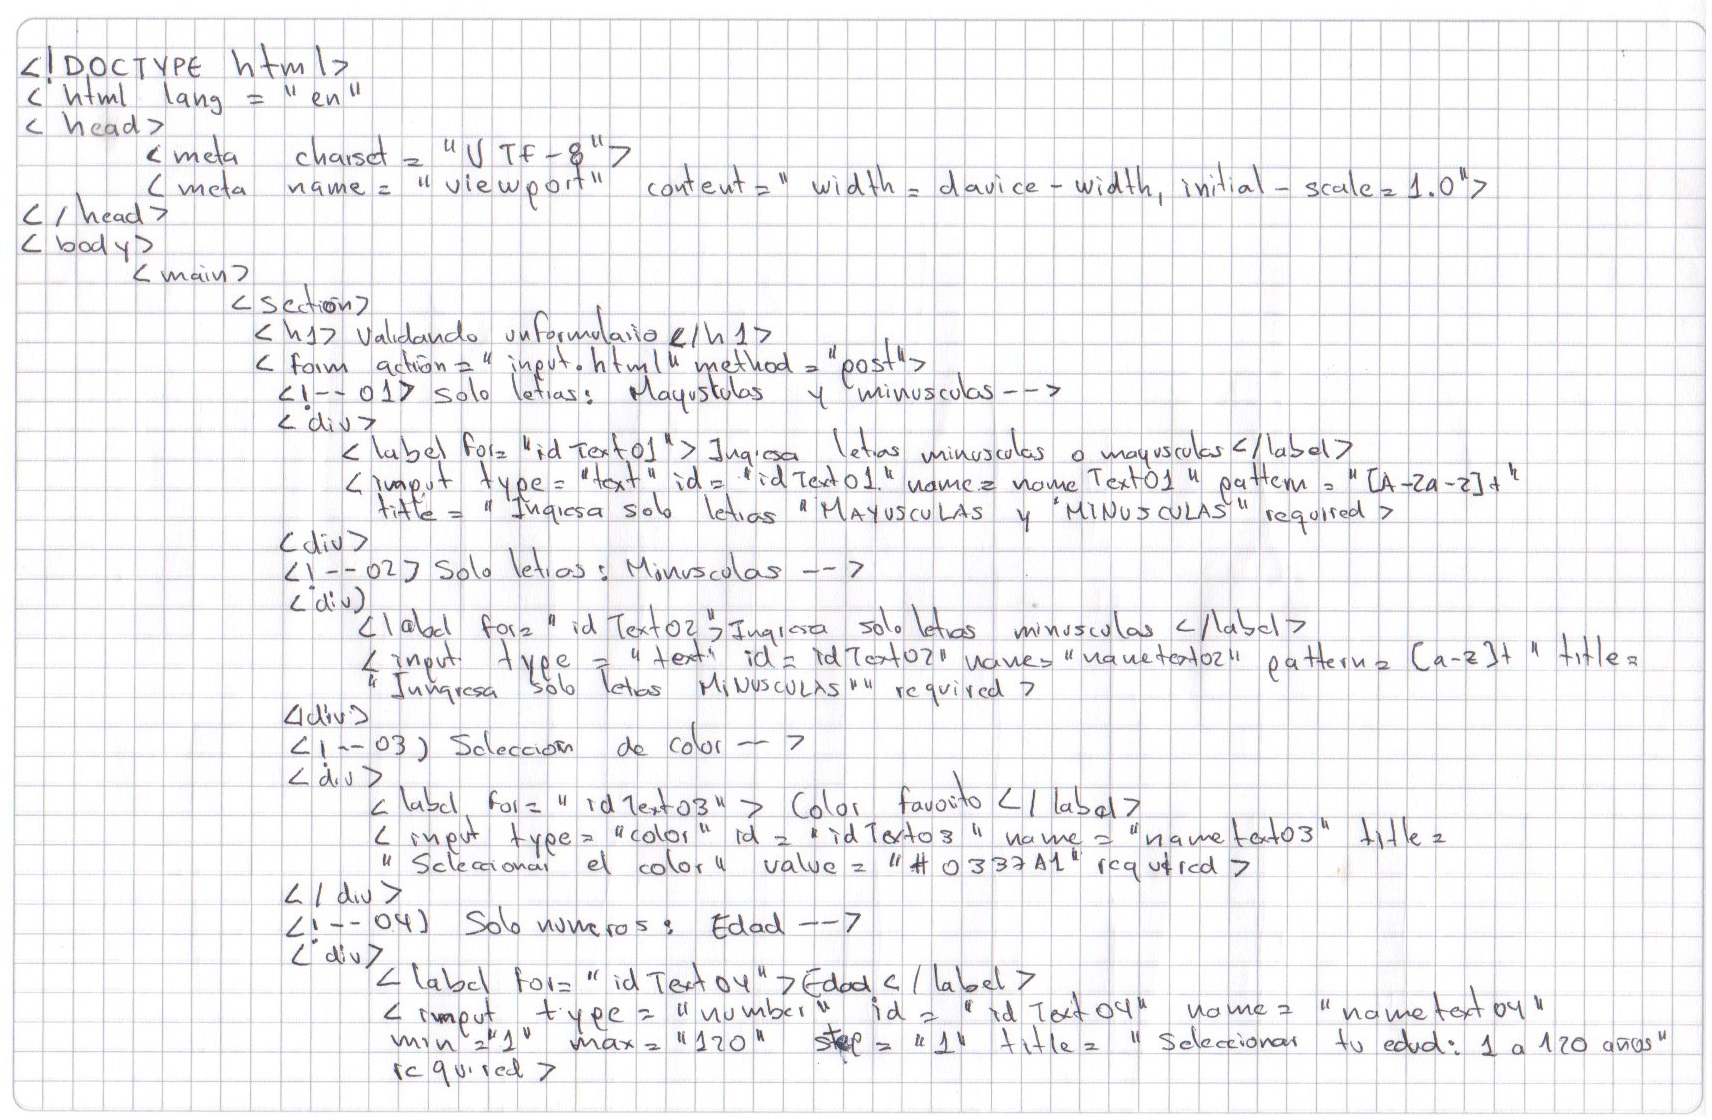 <!DOCTYPE html>
< html lang = "en"
< head>
< meta charset = "UTf-8">
< meta name = "viewport" content = " width = davice - width, initial - scale = 1.0">
</head>
< body>
< main>
< section>
< h1> Validando unformulario </h1>
< form action = "input.html" method = "post">
<!-- 01> solo letras: Mayustulas y minusculas -->
< div>
< label for= "idText01"> Ingresa letras minusculas o mayusculas </label>
< imput type = "text" id = "idText01" name = nameText01" pattern = "[A-Za-z]+"
title = "Ingresa solo letras "MAYUSCULAS y "MINUSCULAS" required >
<div>
<!--02) Solo letras: Minusculas -->
< div)
<label for= "idText02"> Ingresa solo letras minusculas </label>
< input type = "text" id = idText02" name= "nametext02" pattern = [a-z]+ " title=
"Inngresa solo letras MINUSCULAS"" required >
</div>
<!--03) Seleccion de color -- >
< div>
< label for= "idText03" > Color favoito </label>
< input type = "color" id = "idText03" name = "nametext03" title =
"Seleccionar el color" value = "#0337A1" required >
</div>
<!--04) Solo numeros: Edad -->
< div>
< label for= "idText04">Edad </label>
< imput type = "number" id = "idText04" name = "nametext04"
min ="1" max = "120" step = "1" title = "Seleccionar tu edad: 1 a 120 años"
required >